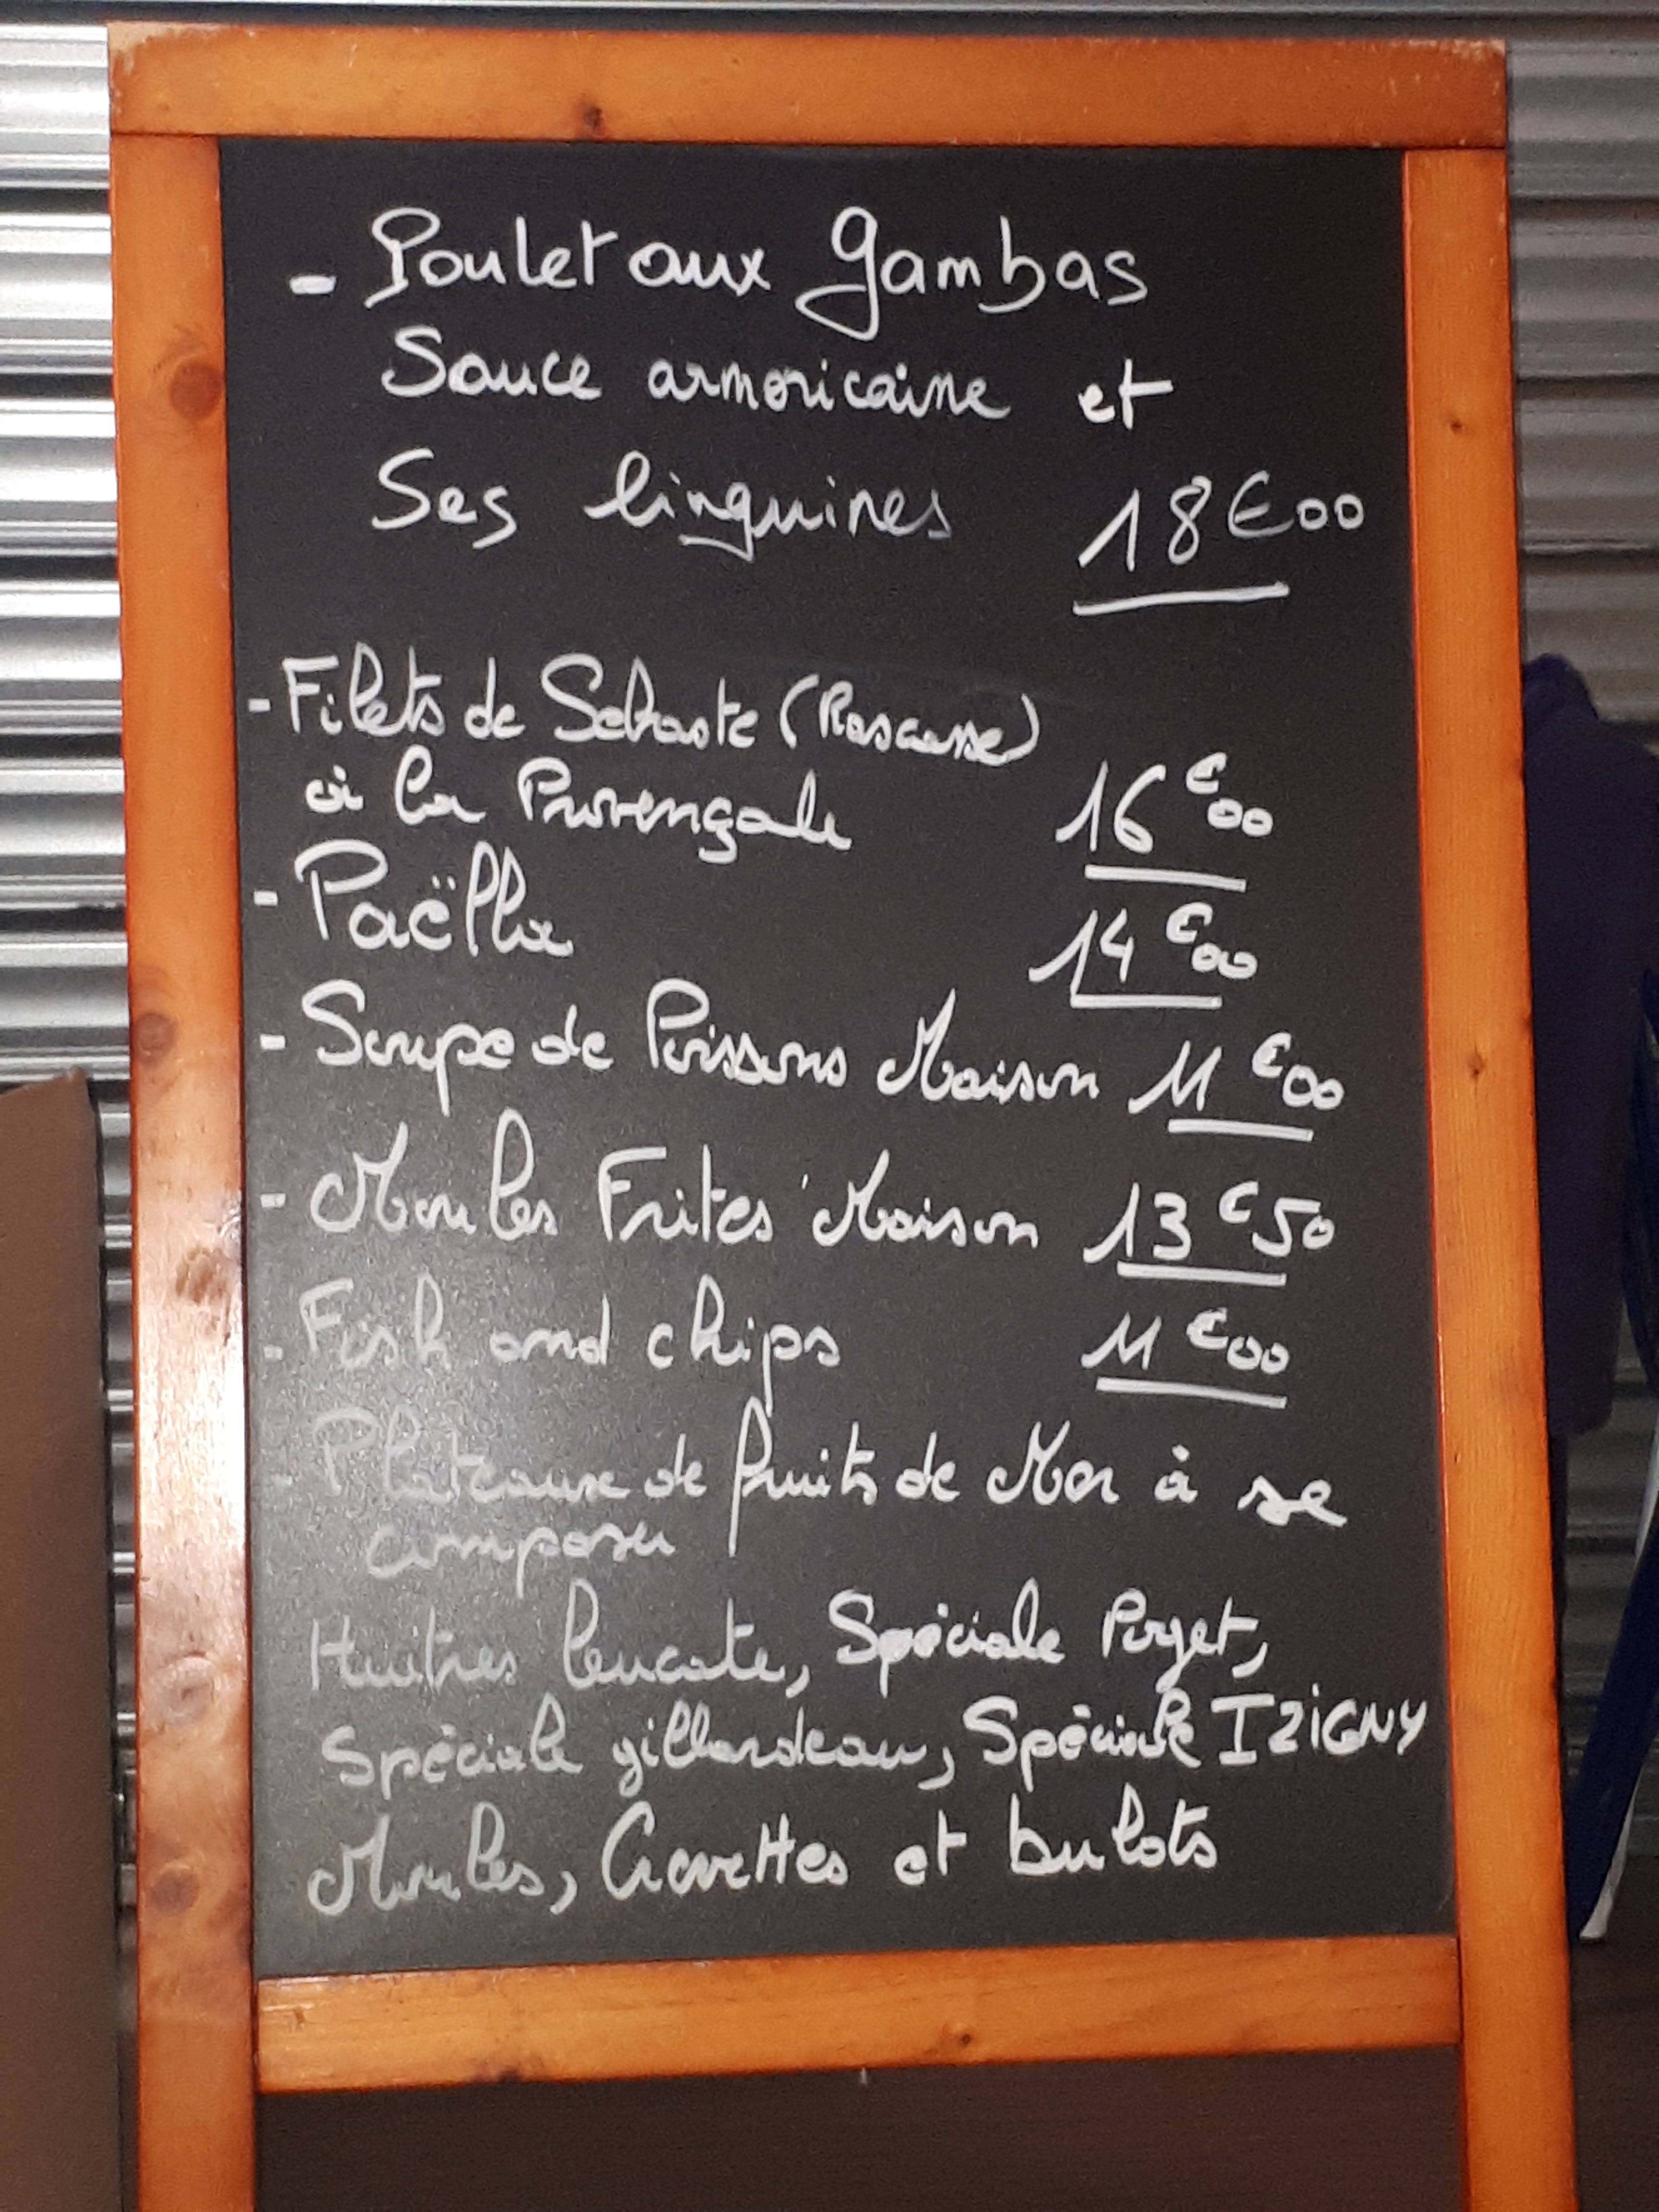 - Poulet aux gambas
Sauce armoricaine et
Ses linguines 18€00
- Filets de Sebaste (Rascasse)
à la Provençale 16€00
- Paëlla 14€00
- Soupe de Poissons Maison 11€00
- Moules Frites Maison 13€50
- Fish and chips 11€00
- Plateaux de fruits de Mer à se
composer
Huitres leucate, Spéciale Poget,
Spéciale gillardeau, Spéciale IZIGNY
Moules, Crevettes et bulots